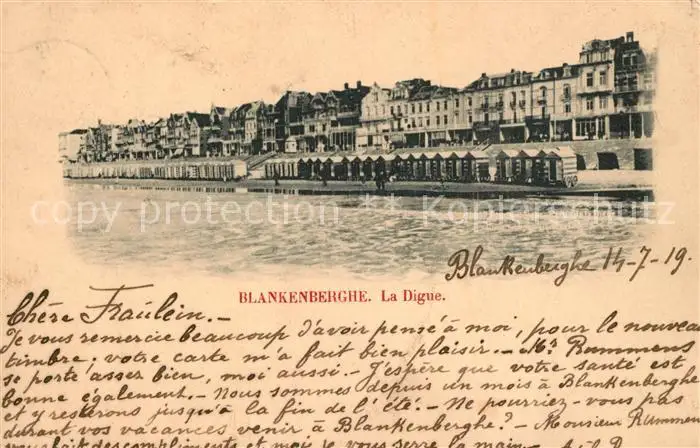 copy protection
Kosel
BLANKENBERGHE. La Digue.
Blankenberghe 14-7-19.
Chère Fraülein. —
Je vous remercie beaucoup d'avoir pensé à moi, pour le nouveau
timbre; votre carte m'a fait bien plaisir. — Mr Rummens
se porte asser bien, moi aussi. — J'espère que votre santé est
bonne également. — Nous sommes depuis un mois à Blankenberghe
et y resterons jusqu'à la fin de l'été. — Ne pourriez-vous pas
durant vos vacances venir à Blankenberghe? — Monsieur Rummens
vous fait des compliments et moi je vous serre la main.